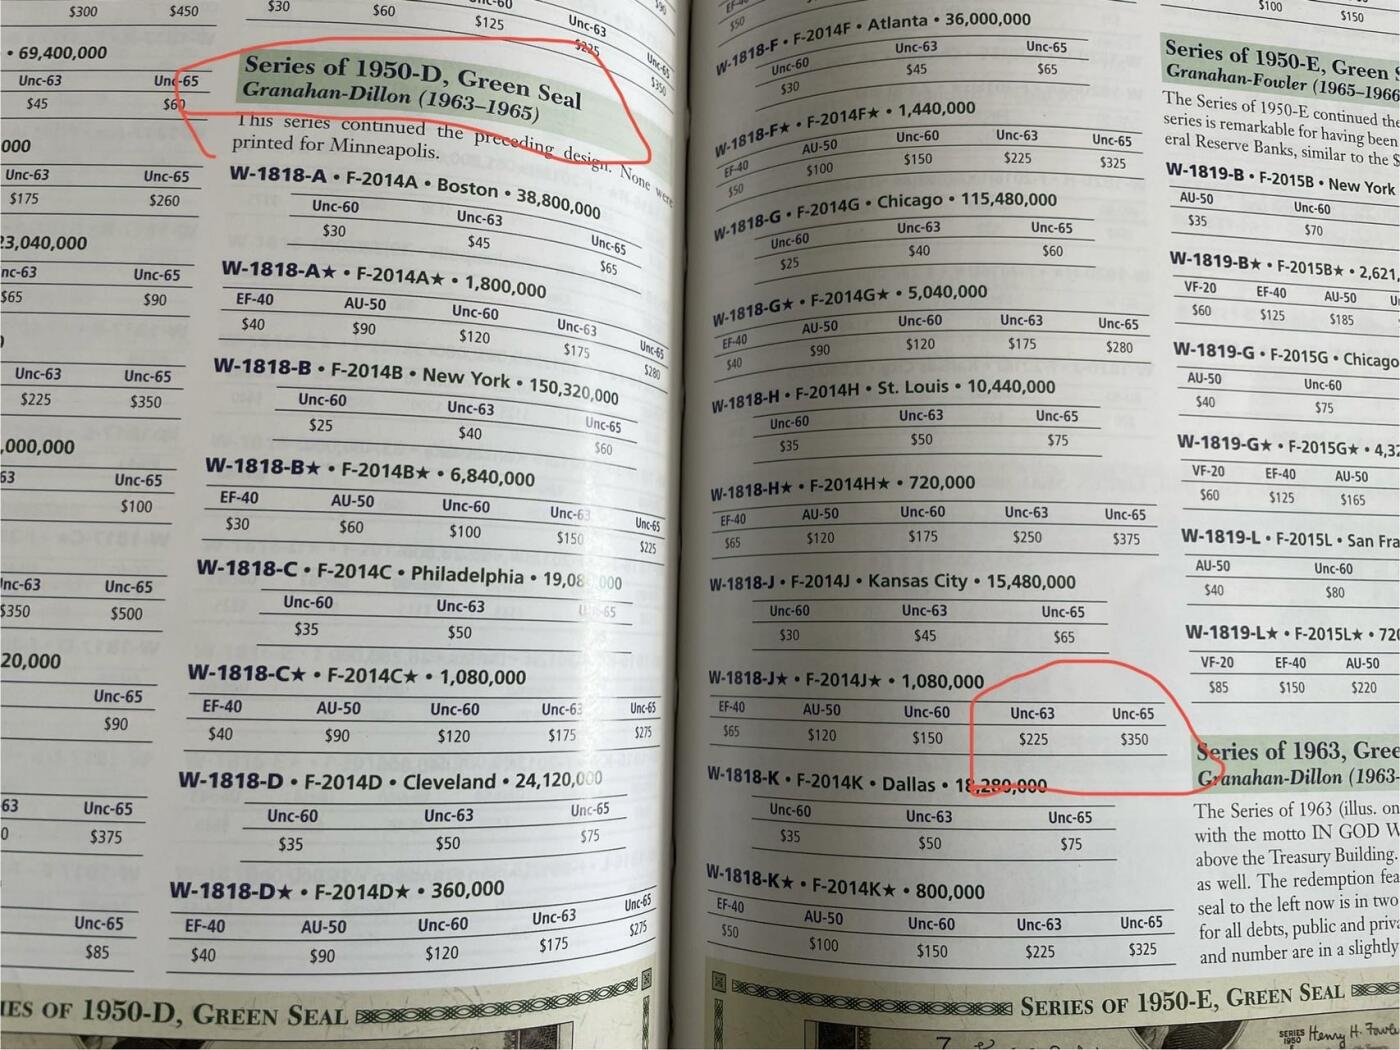 $300 $450
• 69,400,000
Unc-63 Unc-65
$45 $60
000
Unc-63 Unc-65
$175 $260
23,040,000
nc-63 Unc-65
$65 $90
Unc-63 Unc-65
$225 $350
,000,000
63 Unc-65
$100
Inc-63 Unc-65
$350 $500
20,000
Unc-65
$90
63 Unc-65
0 $375
Unc-65
$85
$30 $60 $125 $225 $350
Unc-63 Unc-65
Series of 1950-D, Green Seal
Granahan-Dillon (1963–1965)
This series continued the preceding design. None were
printed for Minneapolis.
W-1818-A • F-2014A • Boston • 38,800,000
Unc-60 Unc-63 Unc-65
$30 $45 $65
W-1818-A★ • F-2014A★ • 1,800,000
EF-40 AU-50 Unc-60 Unc-63 Unc-65
$40 $90 $120 $175 $280
W-1818-B • F-2014B • New York • 150,320,000
Unc-60 Unc-63 Unc-65
$25 $40 $60
W-1818-B★ • F-2014B★ • 6,840,000
EF-40 AU-50 Unc-60 Unc-63 Unc-65
$30 $60 $100 $150 $225
W-1818-C • F-2014C • Philadelphia • 19,080,000
Unc-60 Unc-63 Unc-65
$35 $50
W-1818-C★ • F-2014C★ • 1,080,000
EF-40 AU-50 Unc-60 Unc-63 Unc-65
$40 $90 $120 $175 $275
W-1818-D • F-2014D • Cleveland • 24,120,000
Unc-60 Unc-63 Unc-65
$35 $50 $75
W-1818-D★ • F-2014D★ • 360,000
EF-40 AU-50 Unc-60 Unc-63 Unc-65
$40 $90 $120 $175 $275
IES OF 1950-D, GREEN SEAL
$50
W-1818-F • F-2014F • Atlanta • 36,000,000
Unc-60 Unc-63 Unc-65
$30 $45 $65
W-1818-F★ • F-2014F★ • 1,440,000
EF-40 AU-50 Unc-60 Unc-63 Unc-65
$50 $100 $150 $225 $325
W-1818-G • F-2014G • Chicago • 115,480,000
Unc-60 Unc-63 Unc-65
$25 $40 $60
W-1818-G★ • F-2014G★ • 5,040,000
EF-40 AU-50 Unc-60 Unc-63 Unc-65
$40 $90 $120 $175 $280
W-1818-H • F-2014H • St. Louis • 10,440,000
Unc-60 Unc-63 Unc-65
$35 $50 $75
W-1818-H★ • F-2014H★ • 720,000
EF-40 AU-50 Unc-60 Unc-63 Unc-65
$65 $120 $175 $250 $375
W-1818-J • F-2014J • Kansas City • 15,480,000
Unc-60 Unc-63 Unc-65
$30 $45 $65
W-1818-J★ • F-2014J★ • 1,080,000
EF-40 AU-50 Unc-60 Unc-63 Unc-65
$65 $120 $150 $225 $350
W-1818-K • F-2014K • Dallas • 18,280,000
Unc-60 Unc-63 Unc-65
$35 $50 $75
W-1818-K★ • F-2014K★ • 800,000
EF-40 AU-50 Unc-60 Unc-63 Unc-65
$50 $100 $150 $225 $325
$100 $150
Series of 1950-E, Green S
Granahan-Fowler (1965–1966
The Series of 1950-E continued the
series is remarkable for having been
eral Reserve Banks, similar to the $
W-1819-B • F-2015B • New York
AU-50 Unc-60
$35 $70
W-1819-B★ • F-2015B★ • 2,621,
VF-20 EF-40 AU-50 U
$60 $125 $185
W-1819-G • F-2015G • Chicago
AU-50 Unc-60
$40 $75
W-1819-G★ • F-2015G★ • 4,32
VF-20 EF-40 AU-50
$60 $125 $165
W-1819-L • F-2015L • San Fra
AU-50 Unc-60
$40 $80
W-1819-L★ • F-2015L★ • 720
VF-20 EF-40 AU-50
$85 $150 $220
Series of 1963, Gree
Granahan-Dillon (1963-
The Series of 1963 (illus. on
with the motto IN GOD W
above the Treasury Building.
as well. The redemption fea
seal to the left now is in two
for all debts, public and priva
and number are in a slightly
SERIES OF 1950-E, GREEN SEAL
7
SERIES
1950
Henry H. Fowle